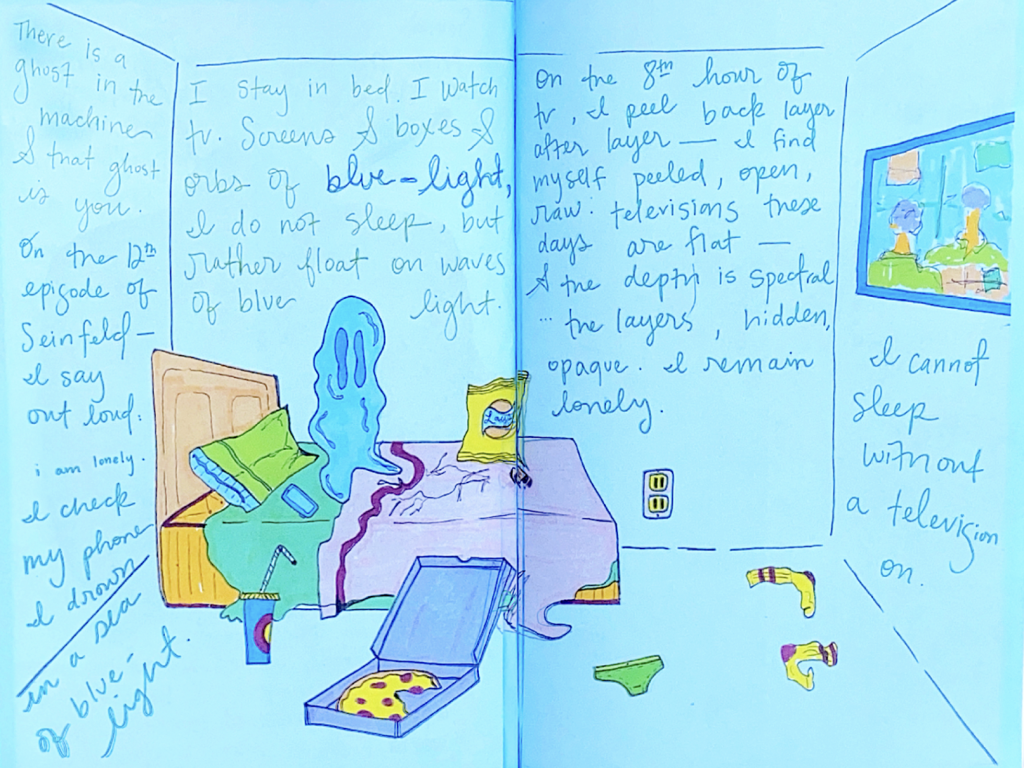 There is a
ghost in the
machine
& that ghost
is you.
On the 12th
episode of
Seinfeld—
I say
out loud:
i am lonely.
I check
my phone
I drown
in a sea
of blue-
light.
I stay in bed. I watch
tv. Screens & boxes &
orbs of blue-light,
I do not sleep, but
rather float on waves
of blue light.
On the 8th hour of
tv, I peel back layer
after layer — I find
myself peeled, open,
raw: televisions these
days are flat —
& the depth is spectral
... the layers, hidden,
opaque. I remain
lonely.
Lay's
I cannot
sleep
without
a television
on.